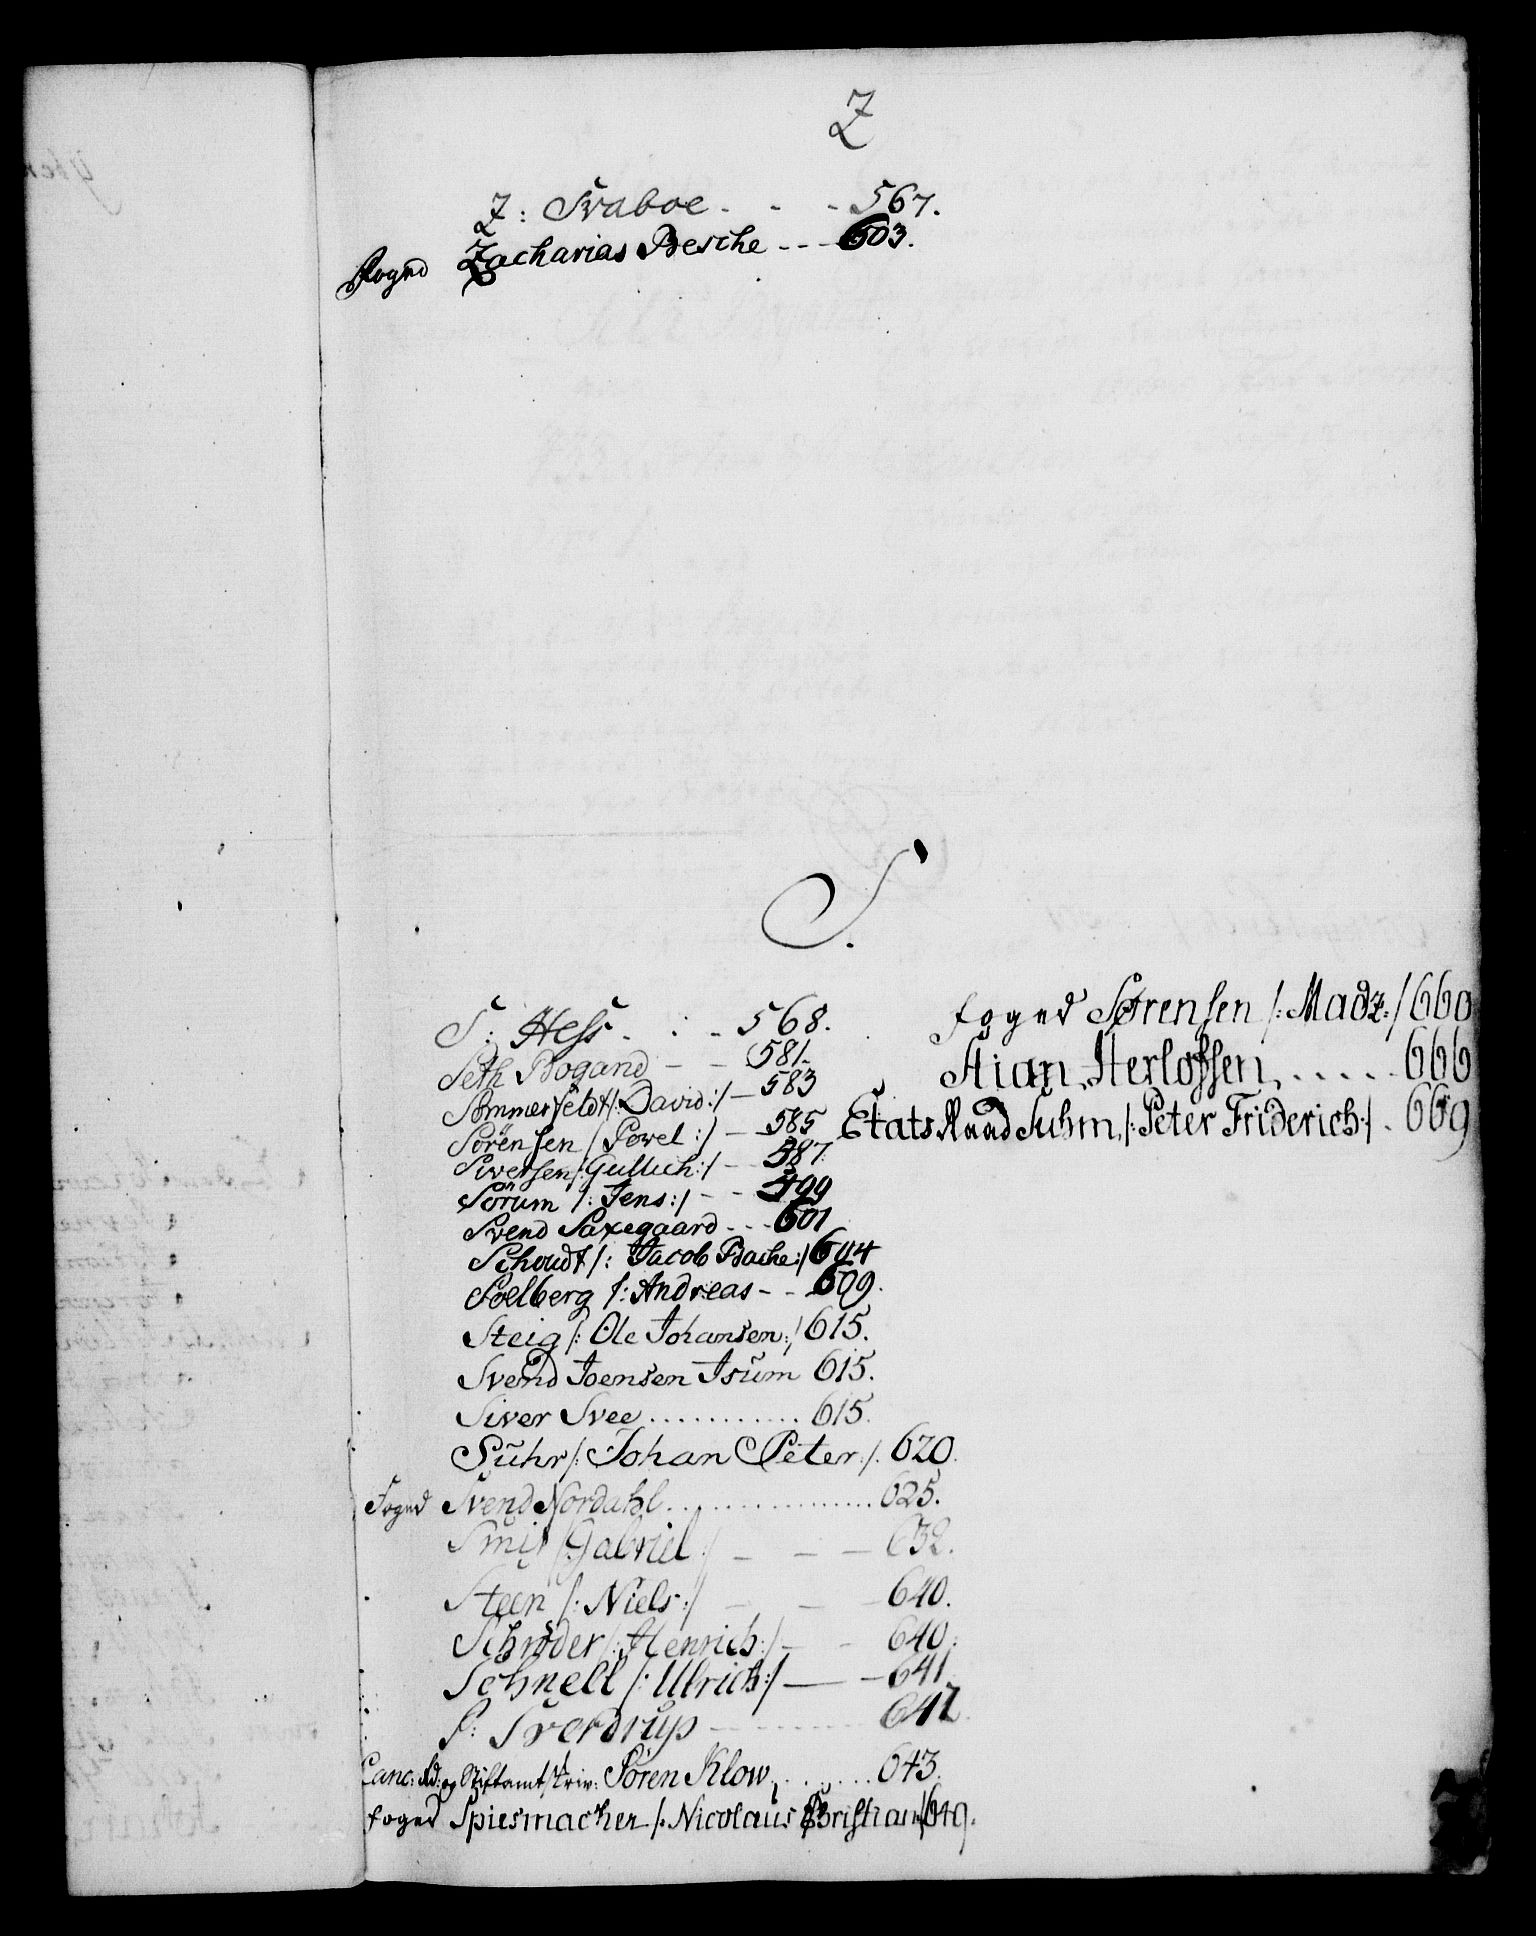 Z
Z: Svaboe - - - 567.
Foged Zacharias Besche - - - 603.
S.
S: Hess - : - 568.
Seth Bogand - - 581.
Sommerfeldt /: David :/ - 583
Sörensen /: Povel :/ - 585
Siversen /: Gullich :/ - - 587.
Sörum /: Jens :/ - - 599
Svend Saxegaard - - - 601
Schoudt /: Jacob Bache :/ 604
Soelberg /: Andreas - - 609.
Steig /: Ole Johansen :/ 615.
Svend Joensen Isum 615.
Siver Svee ........... 615.
Suhr /: Johan Peter :/. 620.
Foged Svend Nordahl ................ 625.
Smit /: Gabriel :/ - - - 632.
Steen /: Niels :/ - - - 640.
Schrøder /: Henrich :/ - - 640.
Schnell /: Ulrich :/ - - 641
S: Sverdrup - ....... 642.
Canc: Rd: og Stiftamtskriv: Sören Klow, ....... 643.
foged Spiesmacher /: Nicolaus Christian :/ 649.
foged Sørensen /: Madz :/ 660
Stian Herlofssen, ..... 666
Etats Raad Suhm, /: Peter Friderich :/ . 669